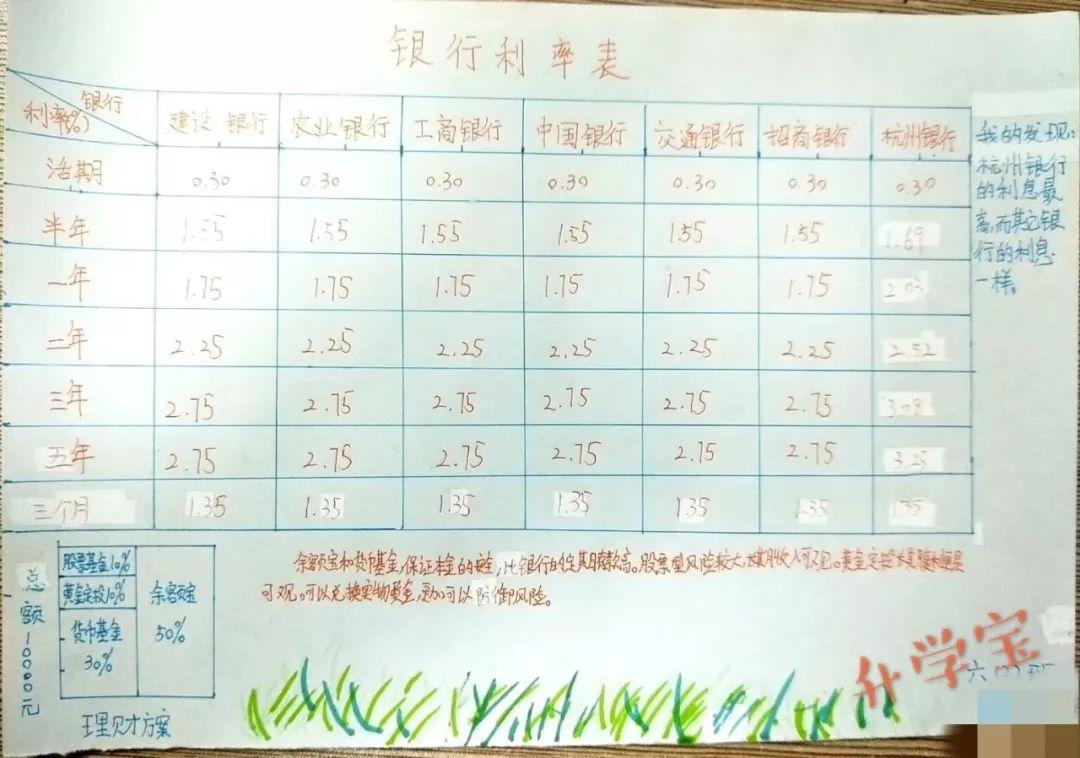 银行利率表
利率(%) 银行 建设银行 农业银行 工商银行 中国银行 交通银行 招商银行 杭州银行
活期 0.30 0.30 0.30 0.30 0.30 0.30 0.30
半年 1.55 1.55 1.55 1.55 1.55 1.55 1.69
一年 1.75 1.75 1.75 1.75 1.75 1.75 2.03
二年 2.25 2.25 2.25 2.25 2.25 2.25 2.52
三年 2.75 2.75 2.75 2.75 2.75 2.75 3.08
五年 2.75 2.75 2.75 2.75 2.75 2.75 3.25
三个月 1.35 1.35 1.35 1.35 1.35 1.35
我的发现:
杭州银行
的利息最
高,而其它银
行的利息
一样。
总额10000元
股票基金10%
黄金定投10%
货币基金
30%
余额宝
50%
理财方案
余额宝和货币基金,保证本金的,比银行的定期存款高。股票型风险较大,长期收入可观。黄金定投长期
可观。可以兑换实物黄金,更加可以防御风险。
升学宝
六